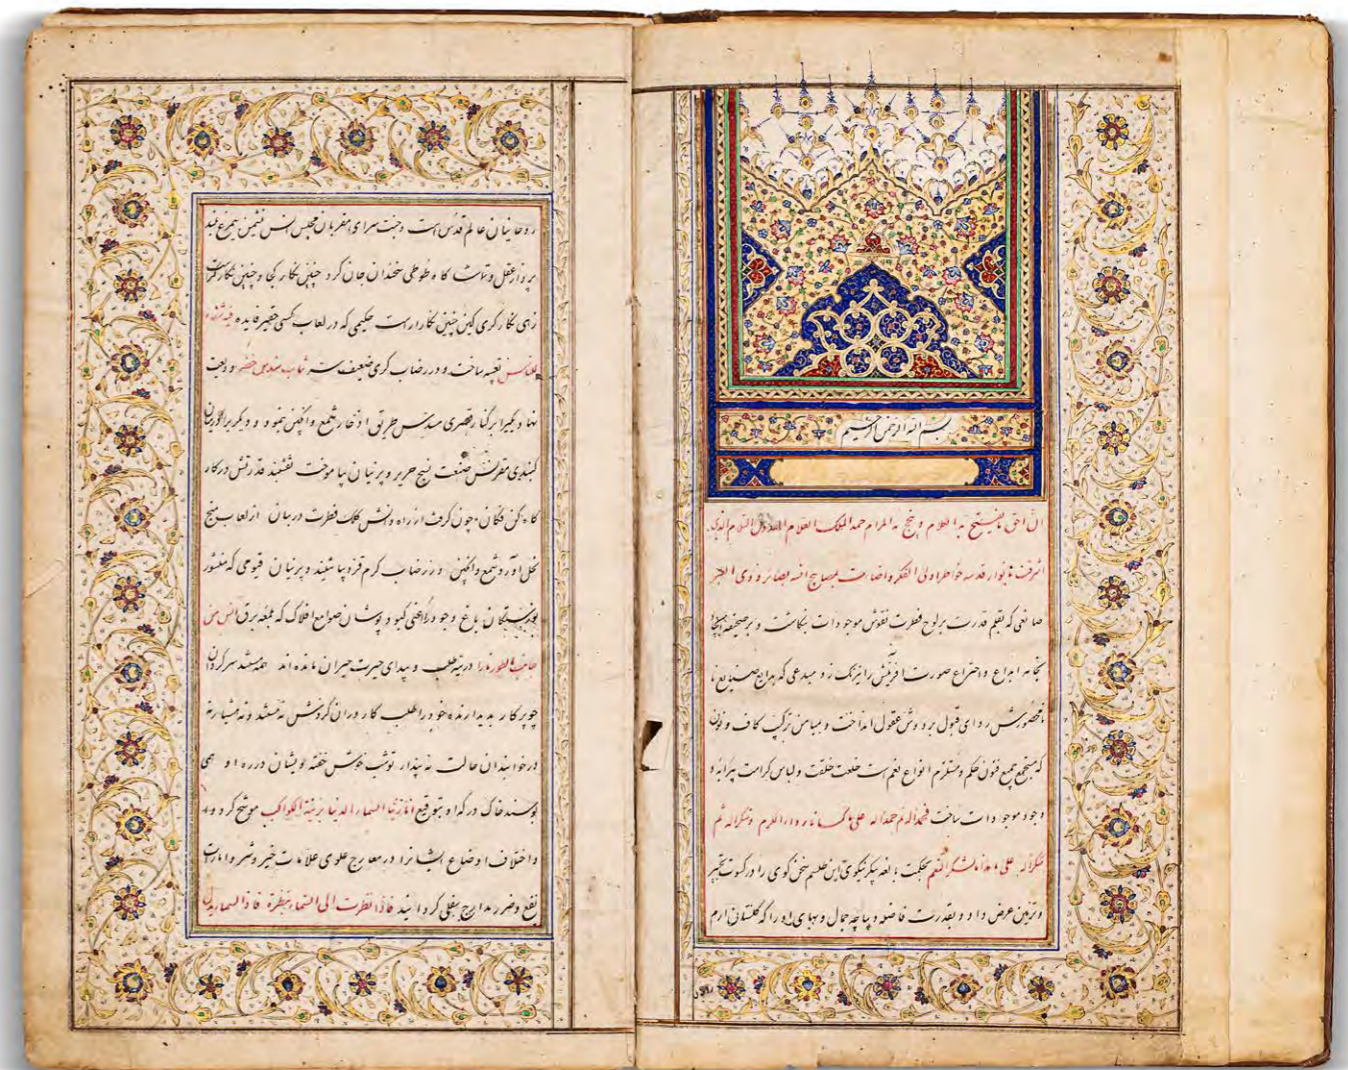 بسم الله الرحمن الرحیم
ان احق ما یفتتح به الکلام و ینجح به المرام حمد الملک العلام القدوس السلام الذی
اشرقت بانوار قدسه خواطر اولی الفکر و اضاءت بمصابیح انسه بصائر ذوی العبر
صانعی که بقلم قدرت بر لوح فطرت نقوش موجودات بنگاشت و بر صحیفه
ابداع و اختراع صورت آفرینش را نیرنک زد و مبدعی که بدایع صنایع
ردای قبول بر دوش عقول انداخت و بمیامن ترکیب کاف و نون
که مستجمع جمیع فنون حکم و مستلزم انواع نعم است خلعت خلقت و لباس کرامت پیرایه
وجود موجودات ساخت فنحمد الله ثم حمدا له علی ما کسانا رداء الکرم و شکرا له ثم
شکرا له علی بحکمت بالغه پیکر نیکوی این طلسم سخن کوی را در کسوت
و تزیین عرض داد و بقدرت فاضله دیباچه جمال و بهای او را که کلستان ارم
روحانیان عالم قدس است و جنت سرای مقربان مجلس انس
پرداز عقل و کاه طوطی سخندان جان کرد چنین نکار کجا و چنین نکار
زهی نکار کری کین چنین نکارد است حکیمی که در لعاب مکسی حقیر فایده فیه شفاء
للناس تعبیه ساخت و در رضاب کرمی ضعیف سر ثیاب سندس خضر ودیعت
نهاد یکی را بر کنار قصری مسدس طریق ادخار شمع و انکبین نمود و دیکر را
کنبدی مقرنس صنعت نسج حریر و پرنیان بیاموخت نقشبند قدرتش در کار
کاه کن فکان چون کرفت از راه دانش کلک فطرت در بنان از لعاب منج
نحل آورد شمع و انکبین وز رضاب کرم قز دیبا شعر و پرنیان قیومی که
باغ وجود را اعنی کبود پوشان صوامع افلاک که بلمعه برق آنس من
جانب الطور نارا در تیه طلب و بیدای حیرت حیران مانده اند همیشه سرکردان
چو پرکار پدیدارنده خود را طلب کار دوران کردش نه مستند و نه هشیار نه
در خواب نه بیدار تو شب خوش خفته و ایشان در ره او همی
بوسند خاک درکه او بتوقیع انا زینا السماء الدنیا بزینة الکواکب موشح کرد و
و اختلاف اوضاع ایشانرا در معارج علوی علامات خیر و شر و امارات
نفع و ضرر مدارج سفلی کردانید فاذا نظرت الی السماء بنظرة فاذا السماء